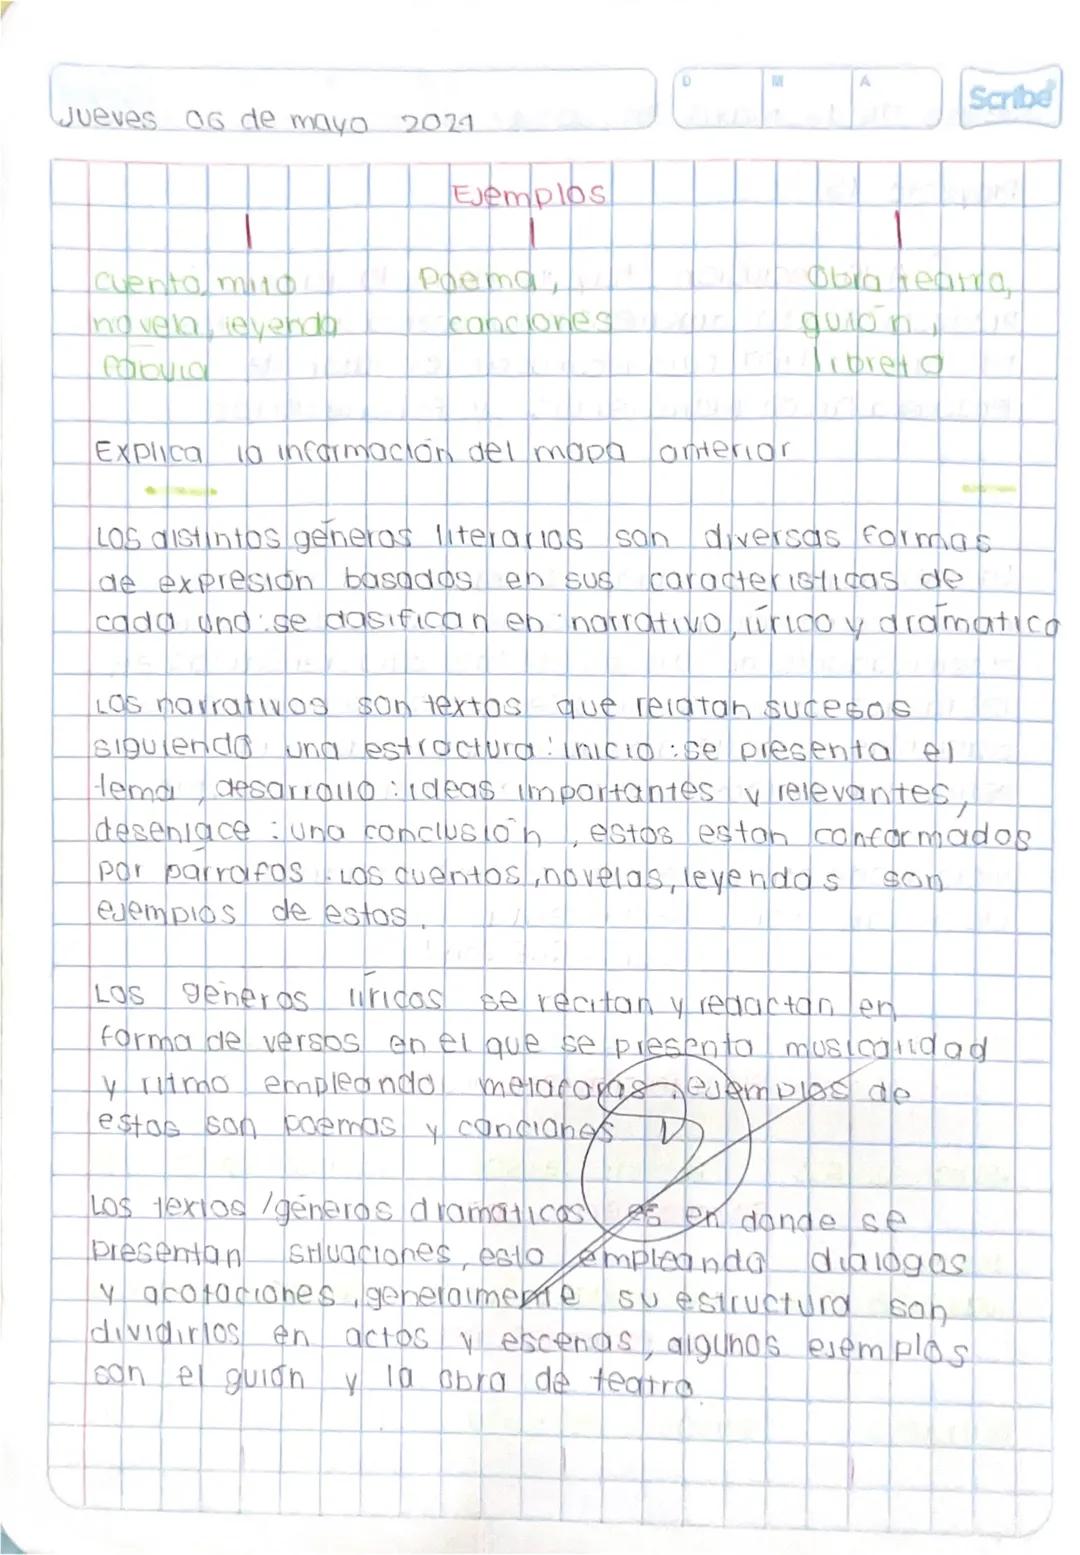 D M A
Scribe
Jueves 06 de mayo 2021
Ejemplos
cuento, mito Poema, Obra teatro,
novela, leyenda canciones guión,
fabula libreto
Explica la información del mapa anterior
Los distintos géneros literarios son diversas formas
de expresión basados en sus caracteristicas de
cada uno: se clasifican en: narrativo, lírico y dramático
Los narrativos son textos que relatan sucesos
siguiendo una estructura: inicio: se presenta el
tema, desarrollo: ideas importantes y relevantes,
desenlace: una conclusión, estos estan conformados
por párrafos. Los cuentos, novelas, leyendas son
ejemplos de estos.
Los géneros líricos se recitan y redactan en
forma de versos en el que se presenta musicalidad
y ritmo empleando metaforas, ejemplos de
estos son poemas y canciones
Los textos /géneros dramáticos es en donde se
presentan situaciones, esto empleando dialogos
y acotaciones, generalmente su estructura son
dividirlos en actos y escenas, algunos ejemplos
son el guión y la obra de teatro